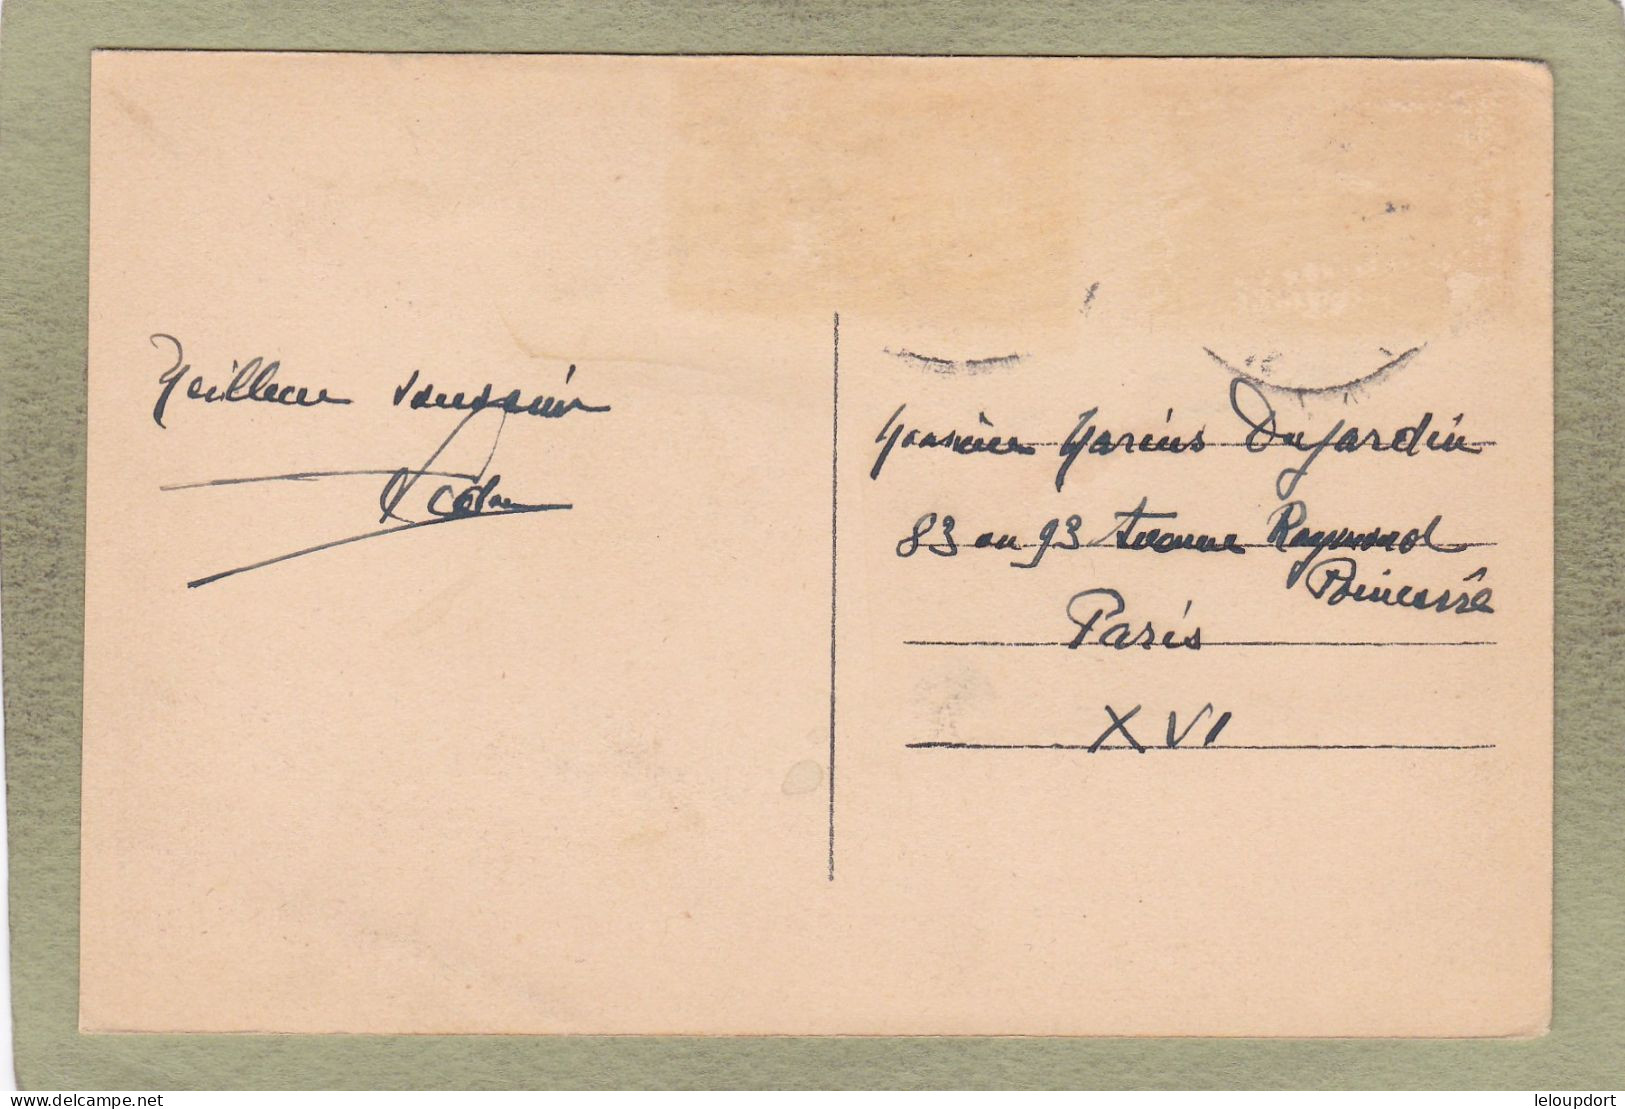 Meilleur souvenir
Monsieur Marius Dujardin
83 ou 93 Avenue Raymond
Poincarré
Paris
XVI
leloupdort